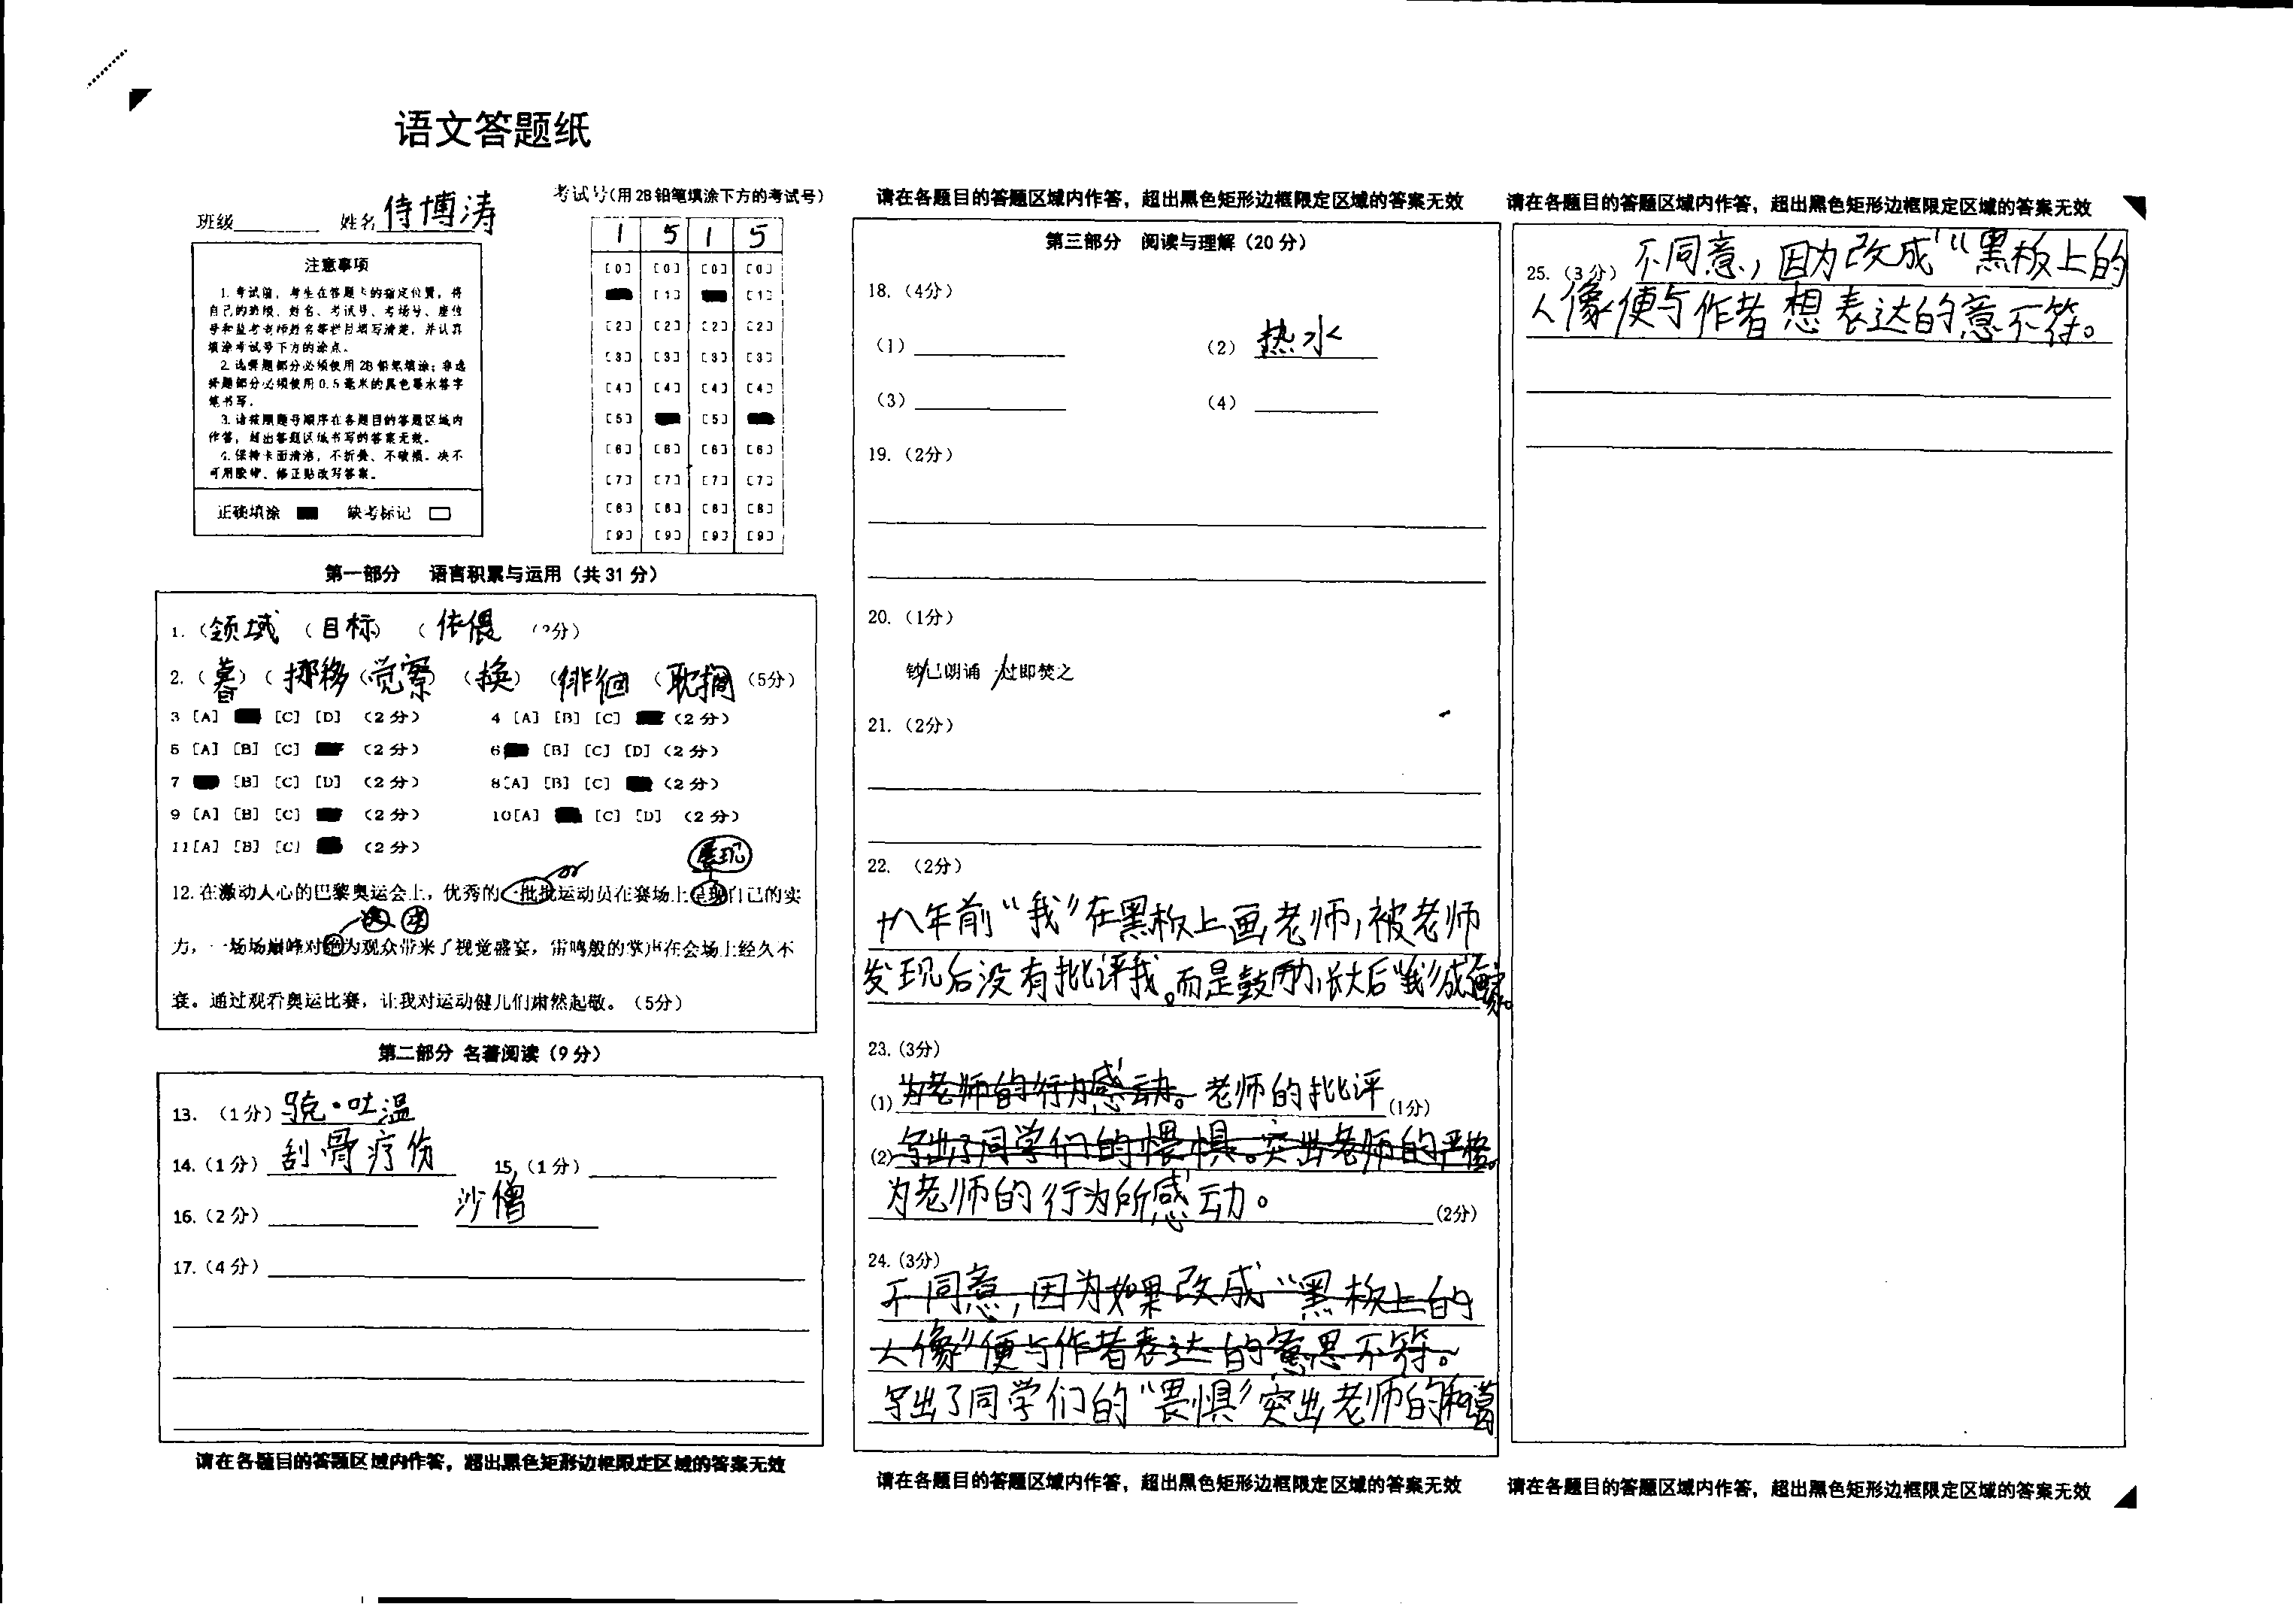 语文答题纸
班级 姓名 侍博涛
考试号(用2B铅笔填涂下方的考试号)
1 5 1 5
[0] [0] [0] [0]
[1] [1]
[2] [2] [2] [2]
[3] [3] [3] [3]
[4] [4] [4] [4]
[5] [5]
[6] [6] [6] [6]
[7] [7] [7] [7]
[8] [8] [8] [8]
[9] [9] [9] [9]
注意事项
1. 考试前，考生在答题卡的指定位置，将
自己的班级、姓名、考试号、考场号、座位
号和监考老师姓名等栏目填写清楚，并认真
填涂考试号下方的涂点。
2. 选择题部分必须使用2B铅笔填涂；非选
择题部分必须使用0.5毫米的黑色墨水签字
笔书写。
3. 请按照题号顺序在各题目的答题区域内
作答，超出答题区域书写的答案无效。
4. 保持卡面清洁，不折叠、不破损。决不
可用胶带、修正贴改写答案。
正确填涂 缺考标记
第一部分 语言积累与运用（共31分）
1.（领域（目标）（依偎 分）
2.（暮）（挪移（觉察（换）（徘徊（耽搁（5分）
3 [A] [C] [D] （2分） 4 [A] [B] [C] （2分）
5 [A] [B] [C] （2分） 6 [B] [C] [D]（2分）
7 [B] [C] [D] （2分） 8[A] [B] [C] （2分）
9 [A] [B] [C] （2分） 10[A] [C] [D] （2分）
11[A] [B] [C] （2分）
展现
12. 在激动人心的巴黎奥运会上，优秀的一批批运动员在赛场上呈现自己的实
力，一场场巅峰对绝为观众带来了视觉盛宴，雷鸣般的掌声在会场上经久不
衰。通过观看奥运比赛，让我对运动健儿们肃然起敬。（5分）
第二部分 名著阅读（9分）
13. （1分）骁·吐温
14.（1分）刮骨疗伤 15.（1分）
16.（2分） 沙僧
17.（4分）
请在各题目的答题区域内作答，超出黑色矩形边框限定区域的答案无效
请在各题目的答题区域内作答，超出黑色矩形边框限定区域的答案无效
第三部分 阅读与理解（20分）
18.（4分）
（1） （2）热水
（3） （4）
19.（2分）
20.（1分）
钞已朗诵 / 过即焚之
21.（2分）
22. （2分）
十八年前“我”在黑板上画老师，被老师
发现后没有批评我。而是鼓励，长大后“我”成
23.（3分）
(1) 为老师的行为感动。老师的批评 (1分)
(2) 写出了同学们的畏惧。突出老师的严格。
为老师的行为所感动。 (2分)
24.（3分）
不同意，因为如果改成“黑板上的
人像”便与作者表达的意思不符。
写出了同学们的“畏惧”突出老师的和蔼
请在各题目的答题区域内作答，超出黑色矩形边框限定区域的答案无效
请在各题目的答题区域内作答，超出黑色矩形边框限定区域的答案无效
25.（3分）不同意，因为改成“黑板上的
人像便与作者想表达的意不符。
请在各题目的答题区域内作答，超出黑色矩形边框限定区域的答案无效